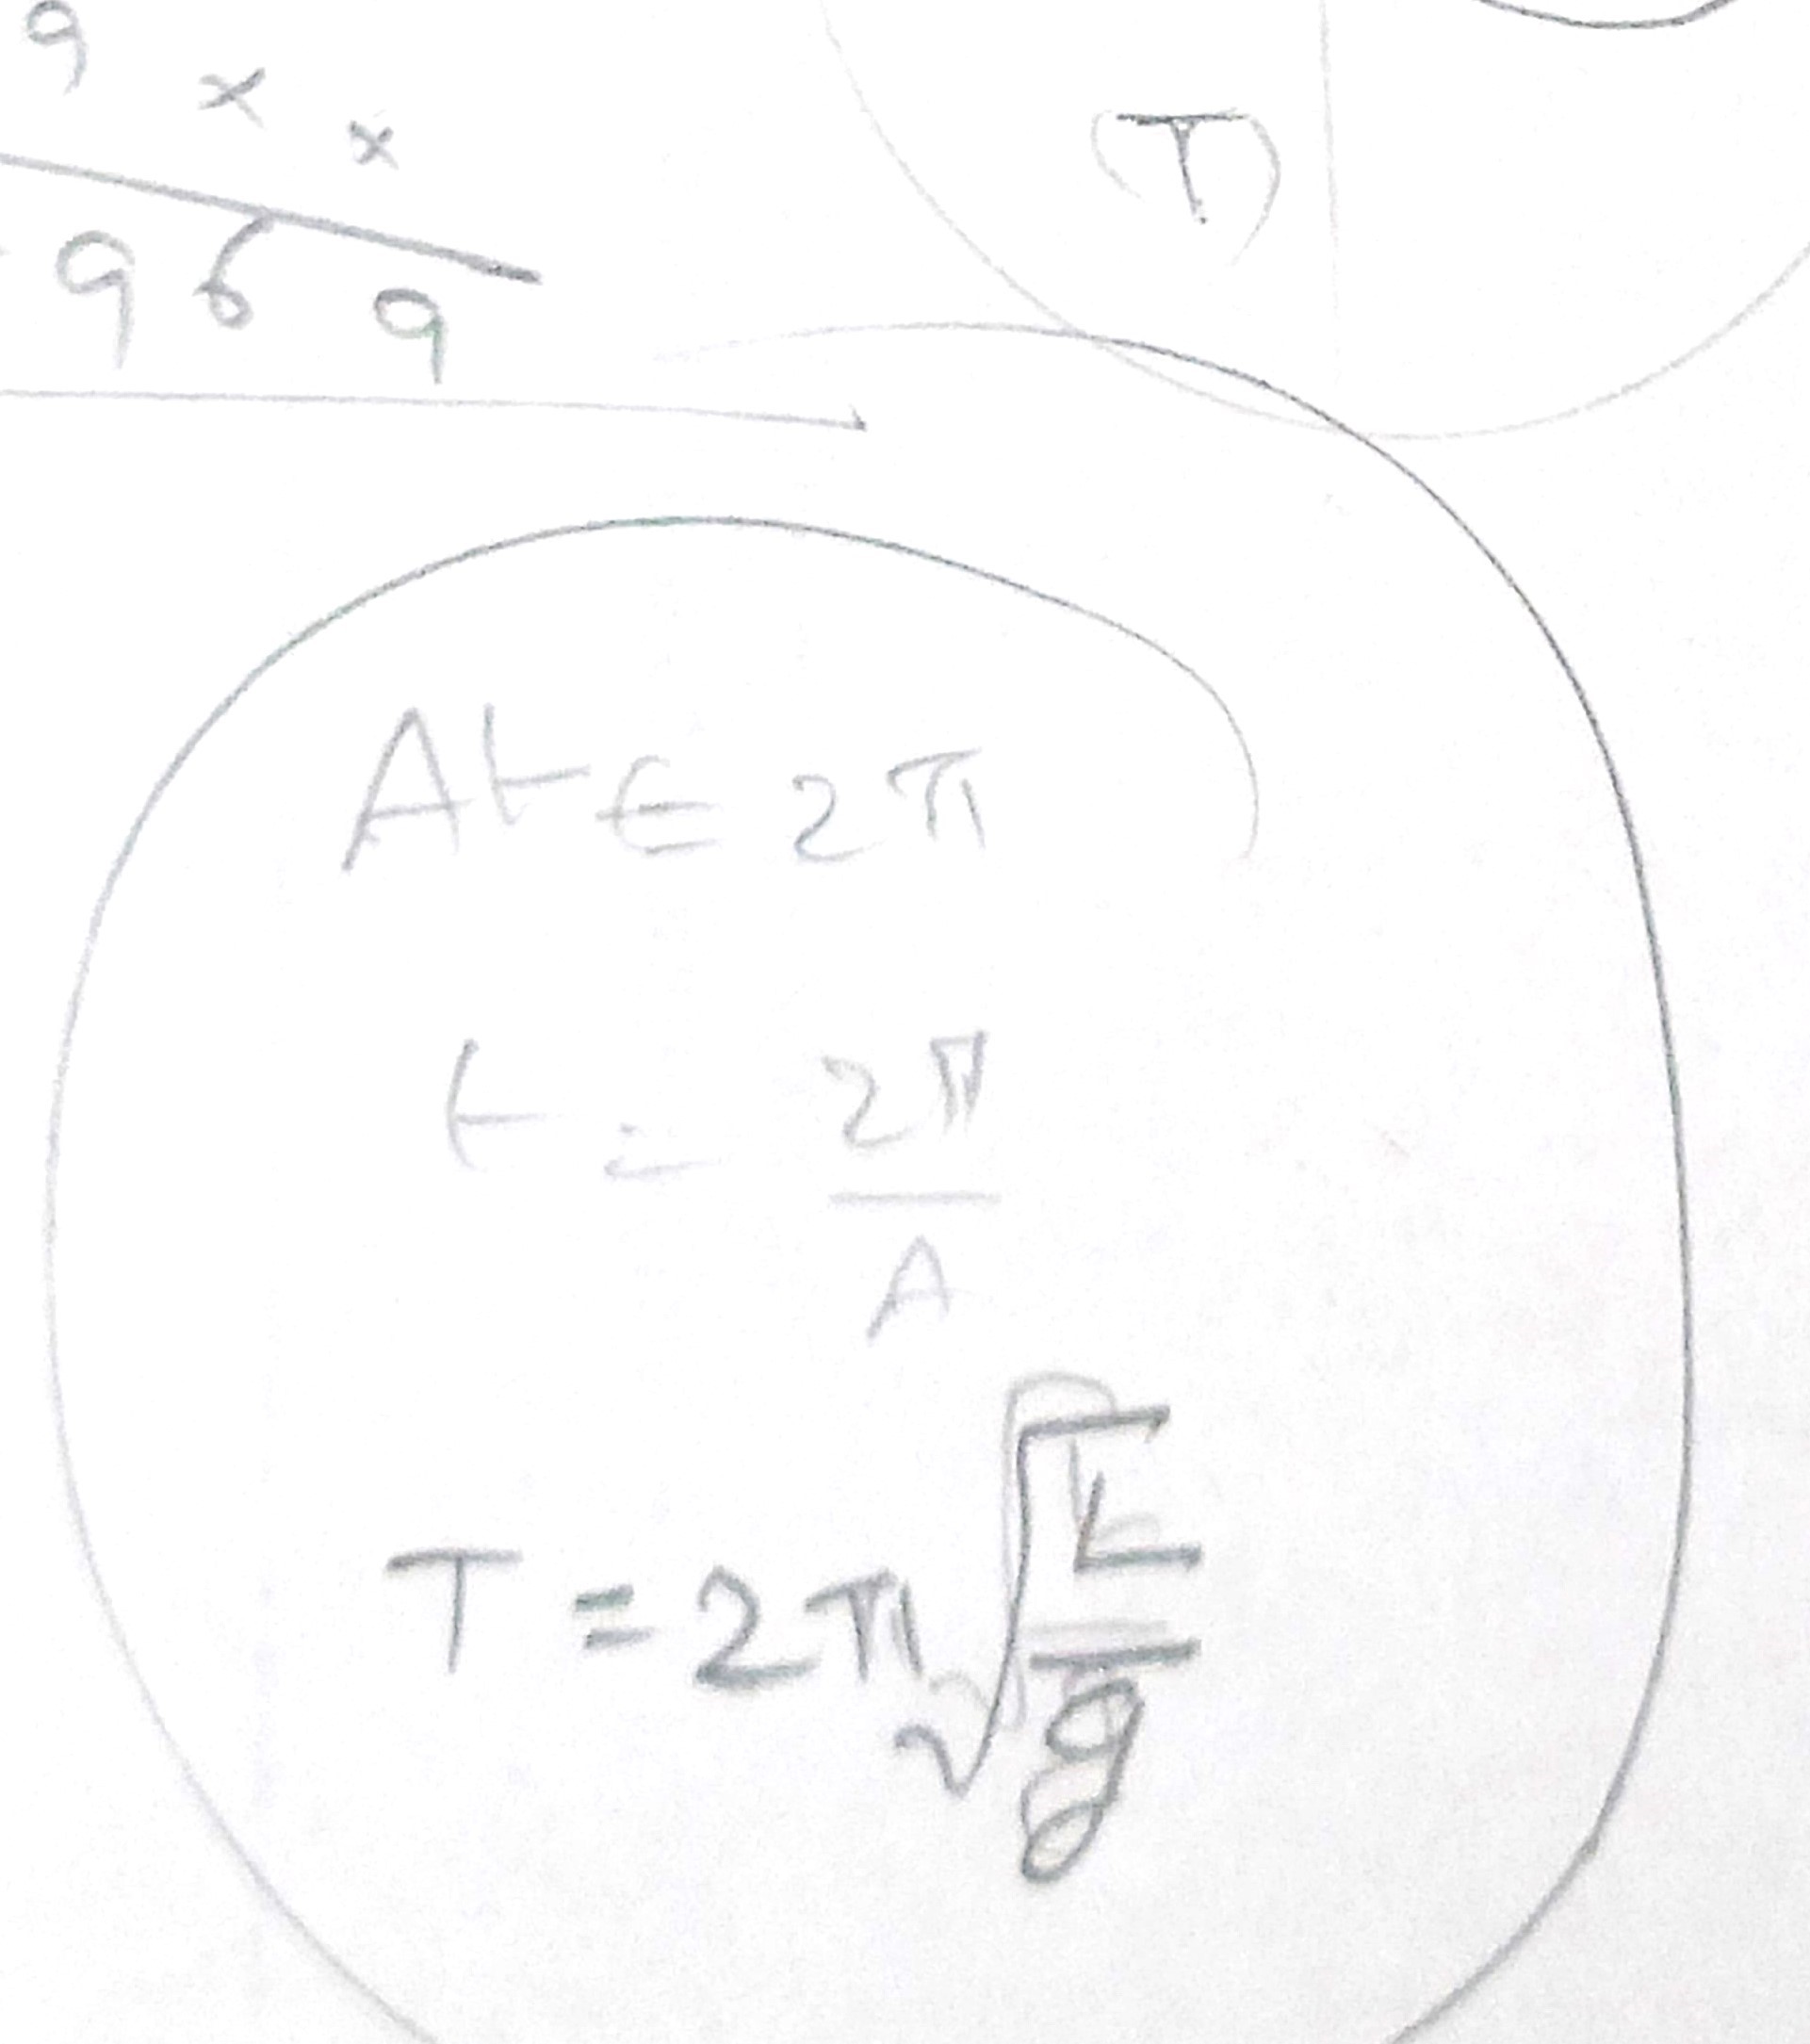 9 x x
9 6 9
T
At = 2π
t = 2π/A
T = 2π√(L/g)